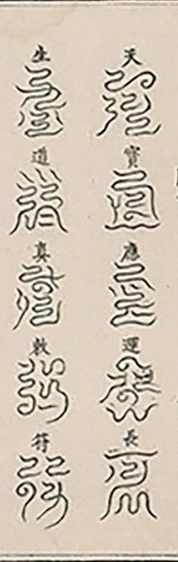 天寶應運長
生道真敕符